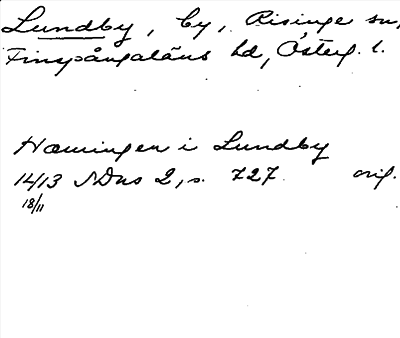 Lundby, by, Risinge sn,
Finspångaläns hd, Österg. l.
Hæmingen i Lundby
1413 SDns 2, s. 727. orig.
18/11